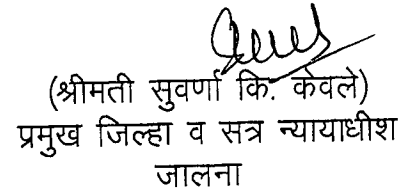 (श्रीमती सुवर्णा कि. केवले)
प्रमुख जिल्हा व सत्र न्यायाधीश
जालना